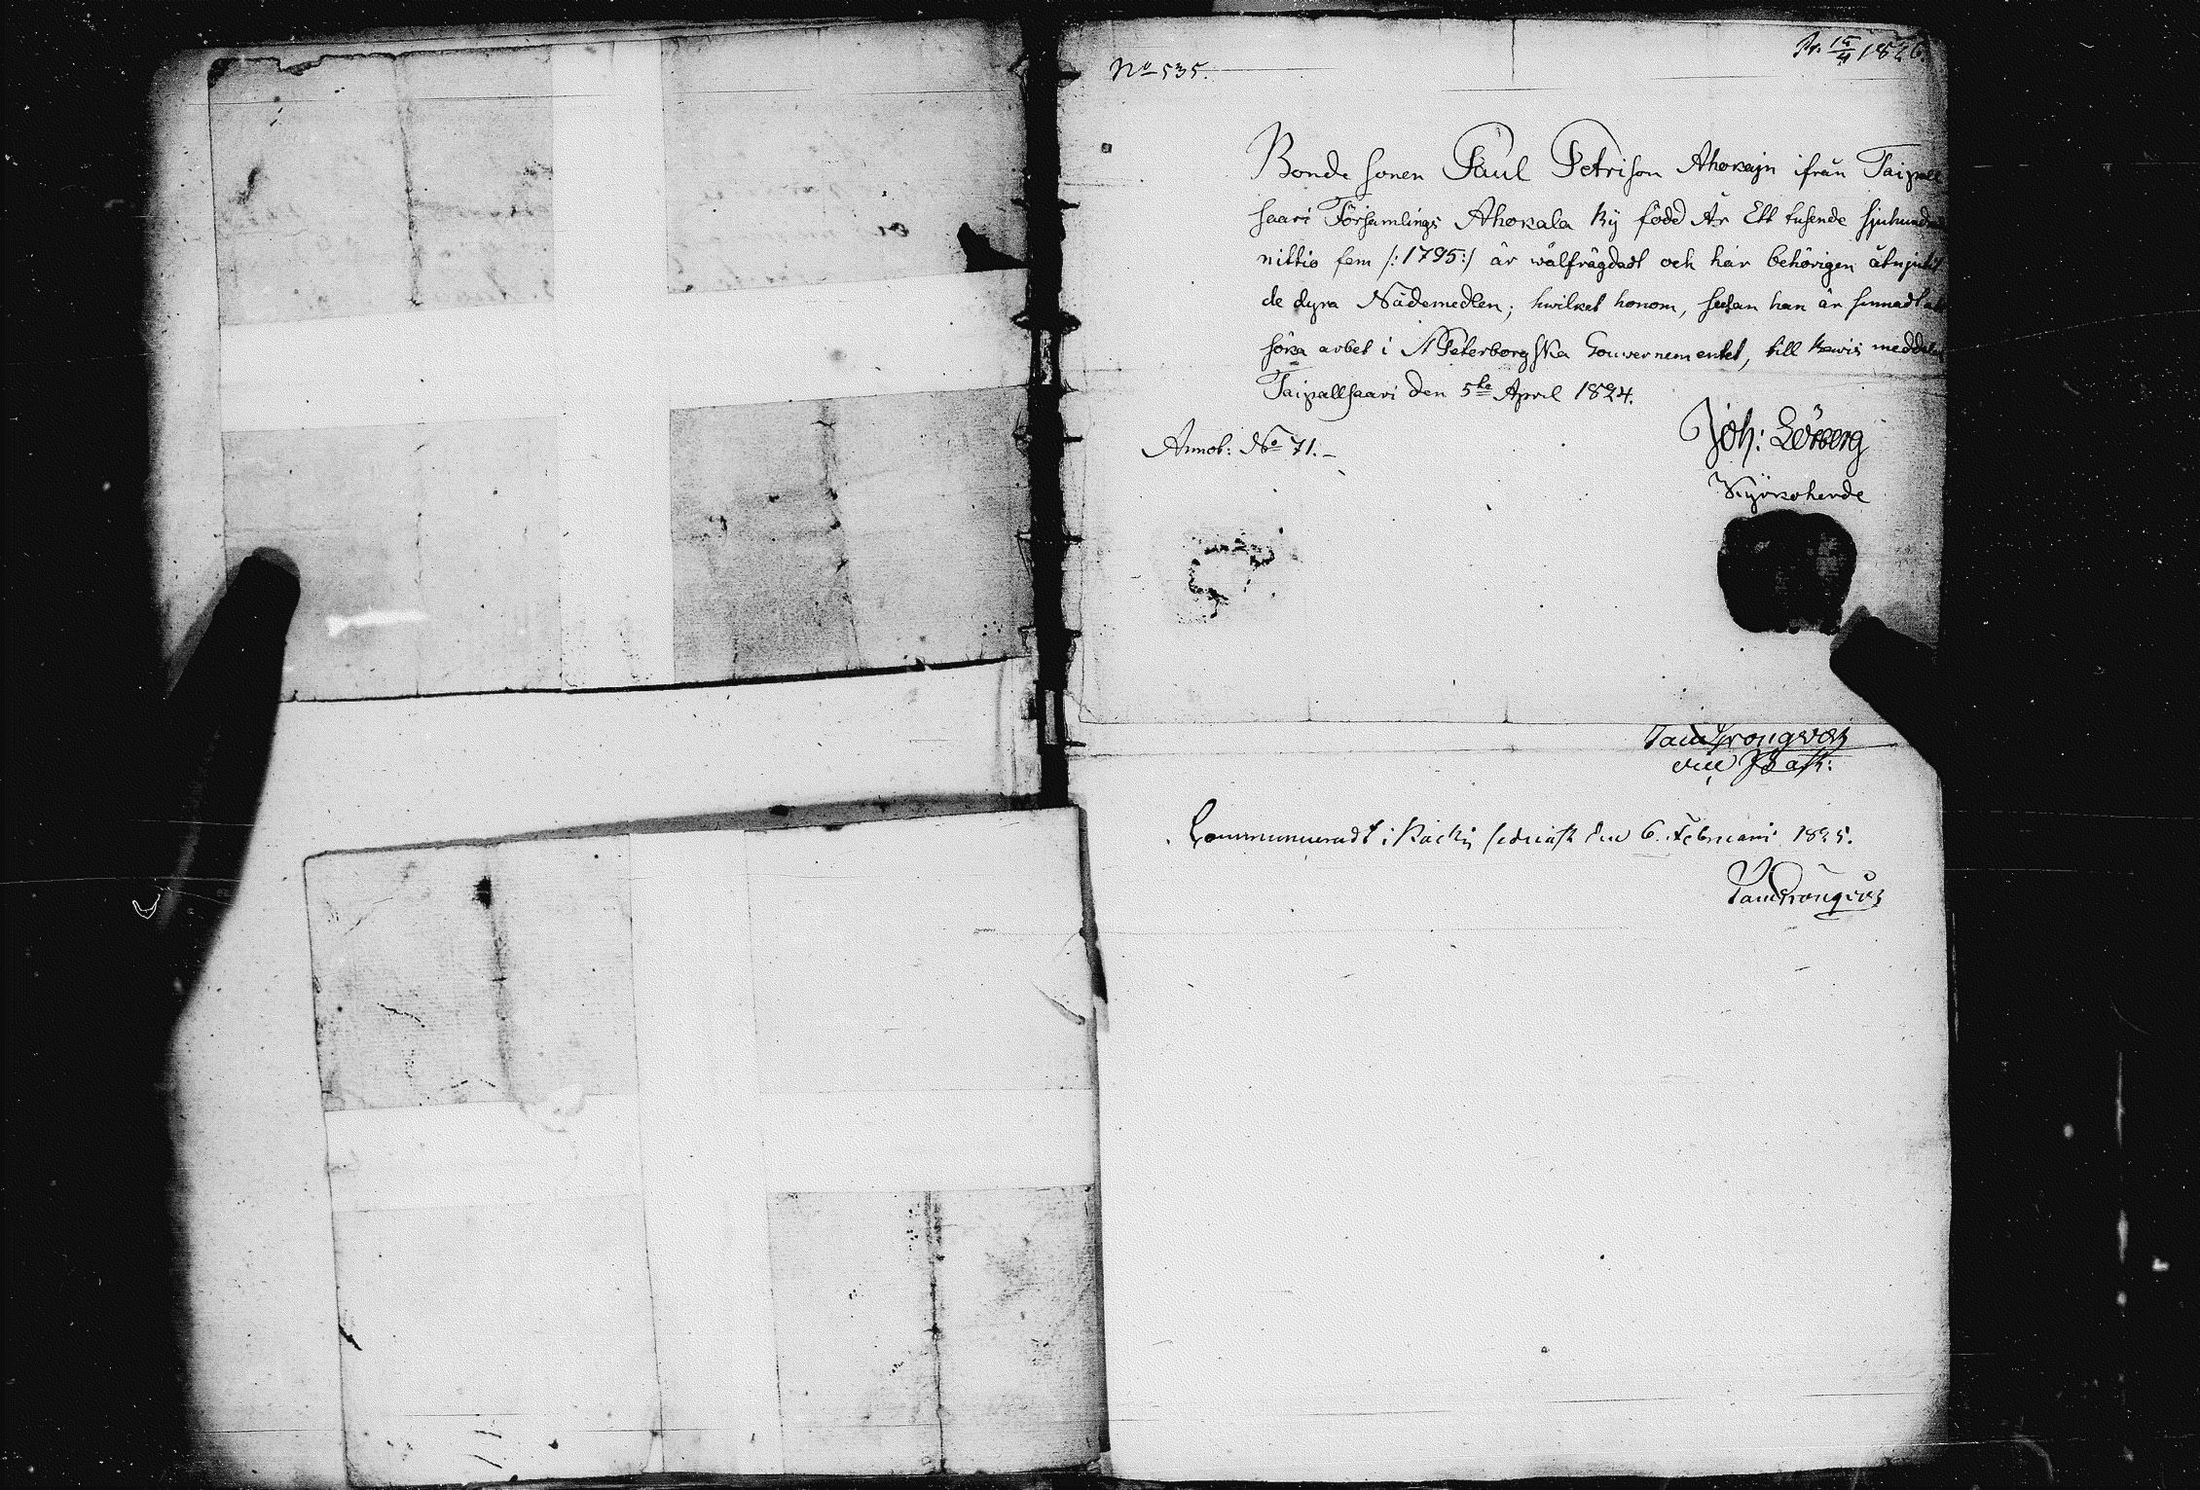 No 535.
Pr. 15/4 1826.
Bonde sonen Paul Petrison Ahokajn ifrån Taipall
saari Församlings Ahokala By född År Ett tusende sjuhundra
nittio fem /:1795:/ är wälfrägdadt och har behörigen åtnjutit
de dyra Nådemedlen; hwilket honom, sedan han är sinnad at
söka arbet i St Peterborgska Gouvernementet, till bewis meddelas
Taipallsaari den 5te April 1824.
Joh: Löfberg
Kyrkoherde
Annot: No 71.
vice
Communiceradt i Räckis den 6. Februari 1825.